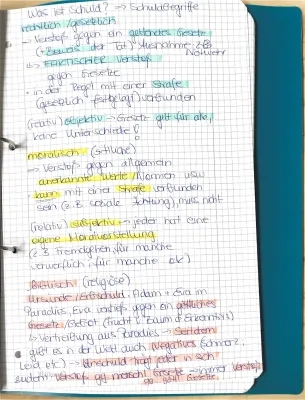 Was ist Schuld? → Schuldbegriffe
rechtlich/gesetzlich
→ Verstoß gegen ein geltendes Gesetz
(+ Beweis der Tat), Ausnahme: z.B.
Notwehr
↳ FAKTISCHER Verstoß
gegen Gesetze
• in der Regel mit einer Strafe
(gesetzlich festgelegt) verbunden
(relativ) objektiv → Gesetz gilt für alle,
keine Unterschiede!
moralisch (ethische)
→ Verstoß gegen allgemein
anerkannte Werte/Normen usw.
kann mit einer Strafe verbunden
sein (z.B. soziale Ächtung), muss nicht
(relativ) subjektiv → jeder hat eine
eigene Moralvorstellung
(z.B. Fremdgehen, für manche
verwerflich, für manche ok)
Biblisch (religiöse)
Ursünde/Erbschuld: Adam + Eva im
Paradies, Eva verstößt gegen ein göttliches
Gesetz/Gebot (Frucht v. Baum d. Erkenntnis)
↳ Vertreibung aus Paradies → Seitdem
gibt es in der Welt auch Negatives (Schmerz,
Leid, etc.) → Urschuld trägt jeder in sich
Verstoß geg. menschl. Gesetz → immer Verstoß
geg. göttl. Gesetze